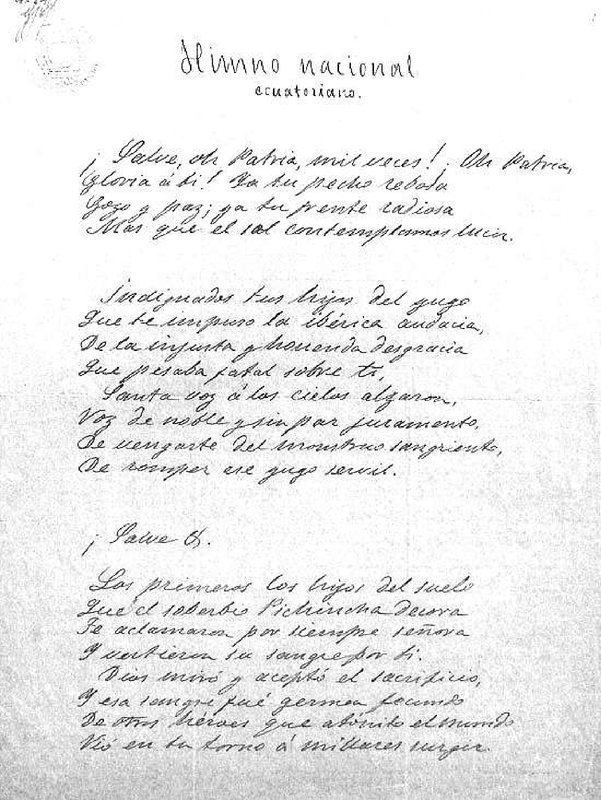 Himno nacional
ecuatoriano.
¡Salve, oh Patria, mil veces! Oh Patria,
Gloria á ti! Ya tu pecho rebosa
Gozo y paz; ya tu frente radiosa
Mas que el sol contemplamos lucir.
Indignados tus hijos del yugo
Que te impuso la ibérica audacia,
De la injusta y horrenda desgracia
Que pesaba fatal sobre ti,
Santa voz á los cielos alzaron,
Voz de noble y sin par juramento,
De vengarte del monstruo sangriento,
De romper ese yugo servil.
¡Salve &.
Los primeros los hijos del suelo
Que el soberbio Pichincha decora
Te aclamaron por siempre señora
Y vertieron su sangre por ti.
Dios miró y aceptó el sacrificio,
Y esa sangre fué germen fecundo
De otros héroes que atónito el mundo
Vió en tu torno á millares surgir.